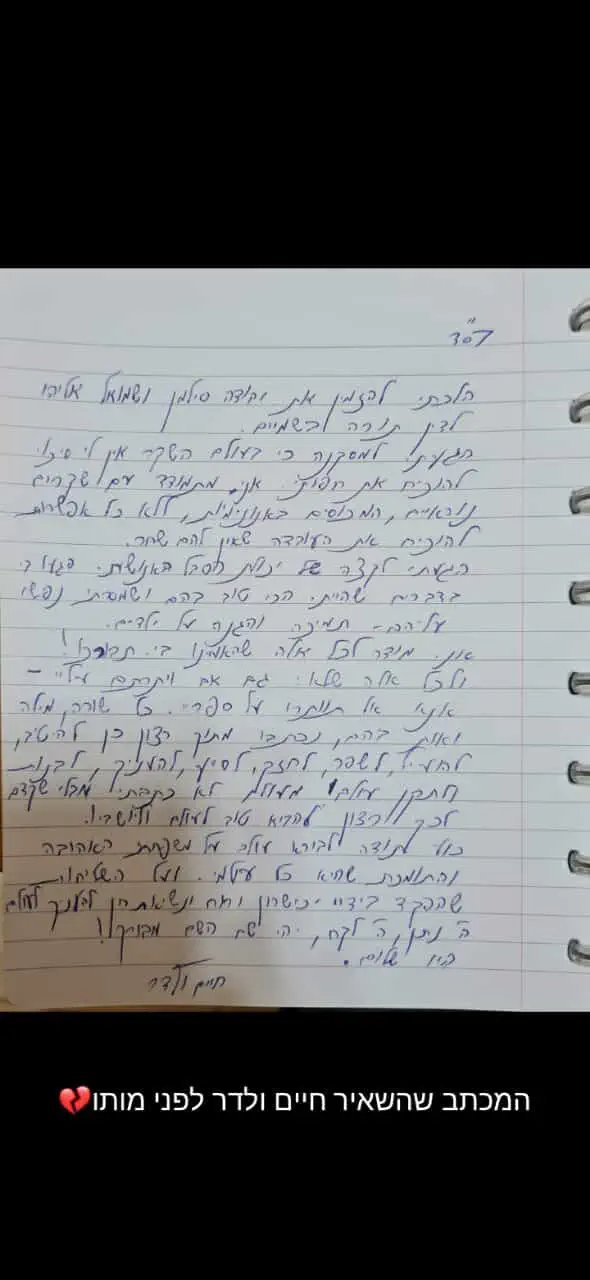 בס"ד
הלכתי להזמין את יהודה סילמן ושמואל אליהו
לדין תורה בשמיים.
הגעתי למסקנה כי בעולם השקר אין לי סיכוי
להוכיח את חפותי. אני מתמודד עם שקרים
נוראיים, המכוסים באנונימיות, ללא כל אפשרות
להוכיח את העובדה שאין להם שחר.
הגעתי לקצה של יכולת הסבל האנושית. פגעו בי
בדברים שהייתי הכי טוב בהם ושמסרתי נפשי
עליהם - תמיכה והגנה על ילדים.
אני מודה לכל אלה שהאמינו בי. תבורכו!
ולכל אלה שלא: גם אם ויתרתם עליי -
אנא אל תוותרו על ספריי. כל שורה, מילה
ואות בהם, נכתבו מתוך רצון כן להיטיב,
להועיל, לשפר, לחזק, לסייע, להעניק, לבנות
ולתקן עולם! מעולם לא כתבתי מבלי שקדם
לכך רצון להביא טוב לעולם וליושביו.
תודה לבורא עולם על משפחתי האהובה
והתומכת שהיא כל עולמי. ועל השליחות
שהפקד בידיי וכישרון ומוח ונשיאת חן להעניק לעולם
ה' נתן, ה' לקח, יהי שם השם מבורך!
היו שלום.
חיים ולדר
המכתב שהשאיר חיים ולדר לפני מותו💔